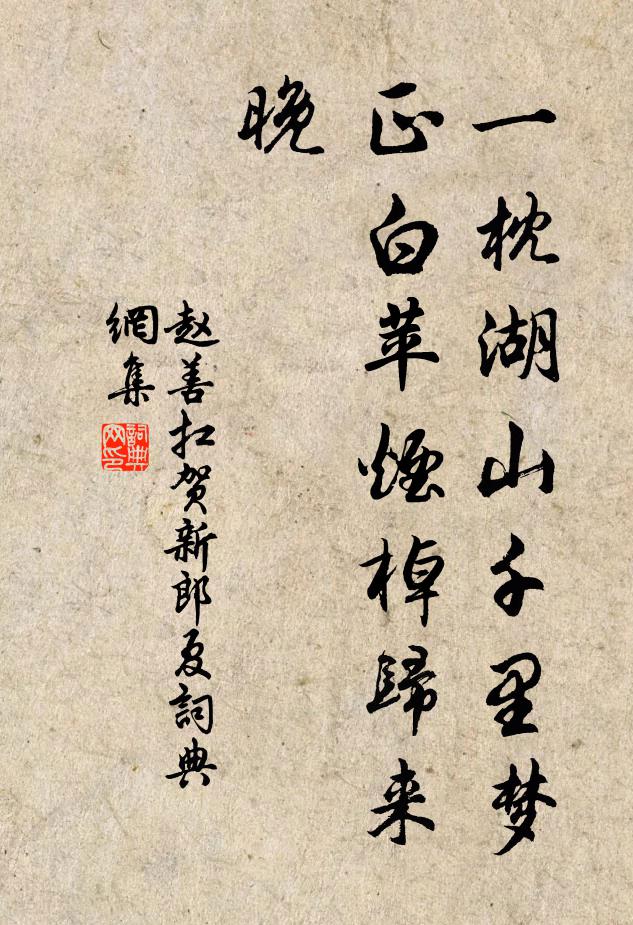 一枕湖山千里梦
正白苹煙棹歸来
晚
赵善扛贺新郎夏词典
網集
詞典
网印